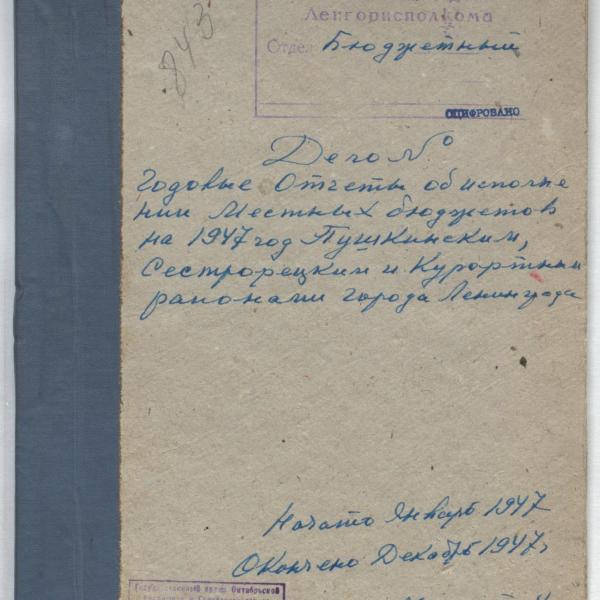 843
Ленгорисполкома
Отдел Бюджетный
ОЦИФРОВАНО
Дело №
Годовые Отчеты об исполне
нии Местных бюджетов
на 1947 год Пушкинским,
Сестрорецким и Курортным
районами города Ленинграда
Начато Январь 1947
Окончено Декабрь 1947 г
Государственный архив Октябрьской